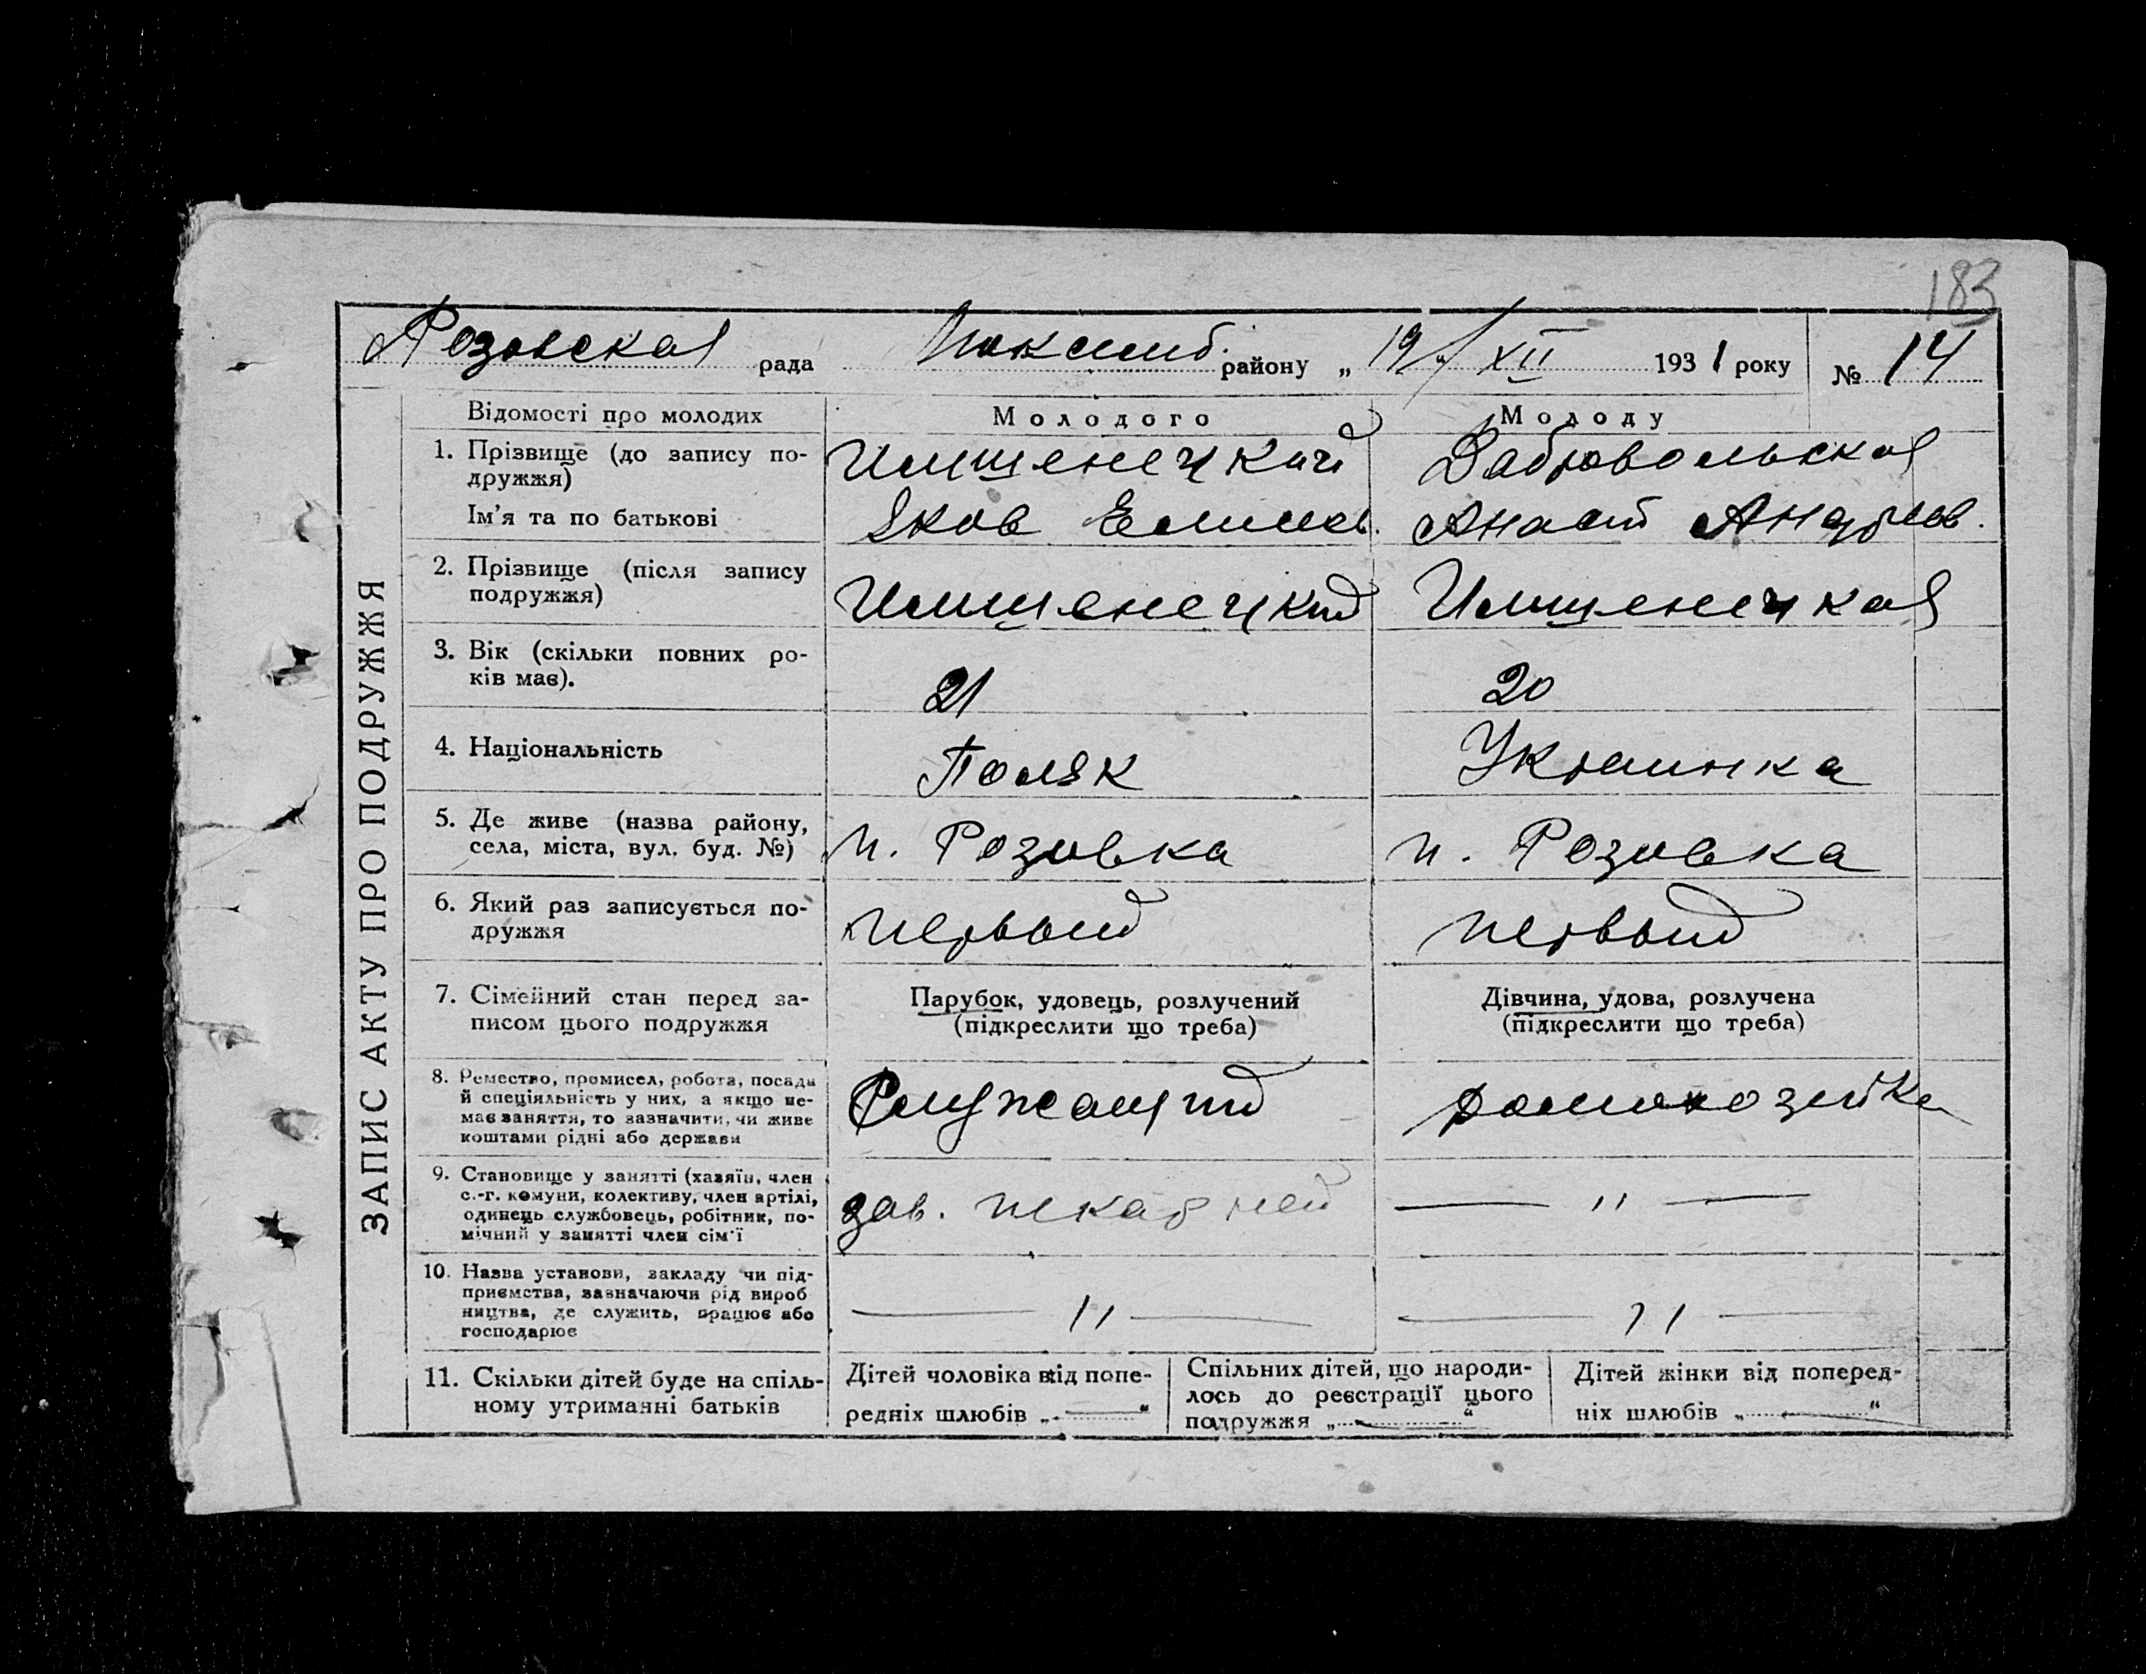 183
Розовская рада Люксемб. району „ 19 " XII 1931 року № 14
ЗАПИС АКТУ ПРО ПОДРУЖЖЯ
Відомості про молодих Молодого Молоду
1. Прізвище (до запису по-
дружжя)
Добровольская
Ім'я та по батькові Яков Анаст Андреев.
2. Прізвище (після запису
подружжя)
3. Вік (скільки повних ро-
ків має). 21 20
4. Національність Поляк Украинка
5. Де живе (назва району,
села, міста, вул. буд. №) п. Розовка п. Розовка
6. Який раз записується по-
дружжя первый первый
7. Сімейний стан перед за-
писом цього подружжя
Парубок, удовець, розлучений
(підкреслити що треба)
Дівчина, удова, розлучена
(підкреслити що треба)
8. Ремество, промисел, робота, посада
й спеціяльність у них, а якщо не-
має заняття, то зазначити, чи живе
коштами рідні або держави
Служащий домохозяйка
9. Становище у занятті (хазяїн, член
с.-г. комуни, колективу, член артілі,
одинець службовець, робітник, по-
мічний у занятті член сім'ї
зав. пекарней — " —
10. Назва установи, закладу чи під-
приємства, зазначаючи рід вироб
ництва, де служить, працює або
господарює
— " — — " —
11. Скільки дітей буде на спіль-
ному утриманні батьків
Дітей чоловіка від попе-
редніх шлюбів „ — "
Спільних дітей, що народи-
лось до реєстрації цього
подружжя „ — "
Дітей жінки від поперед-
ніх шлюбів „ — "